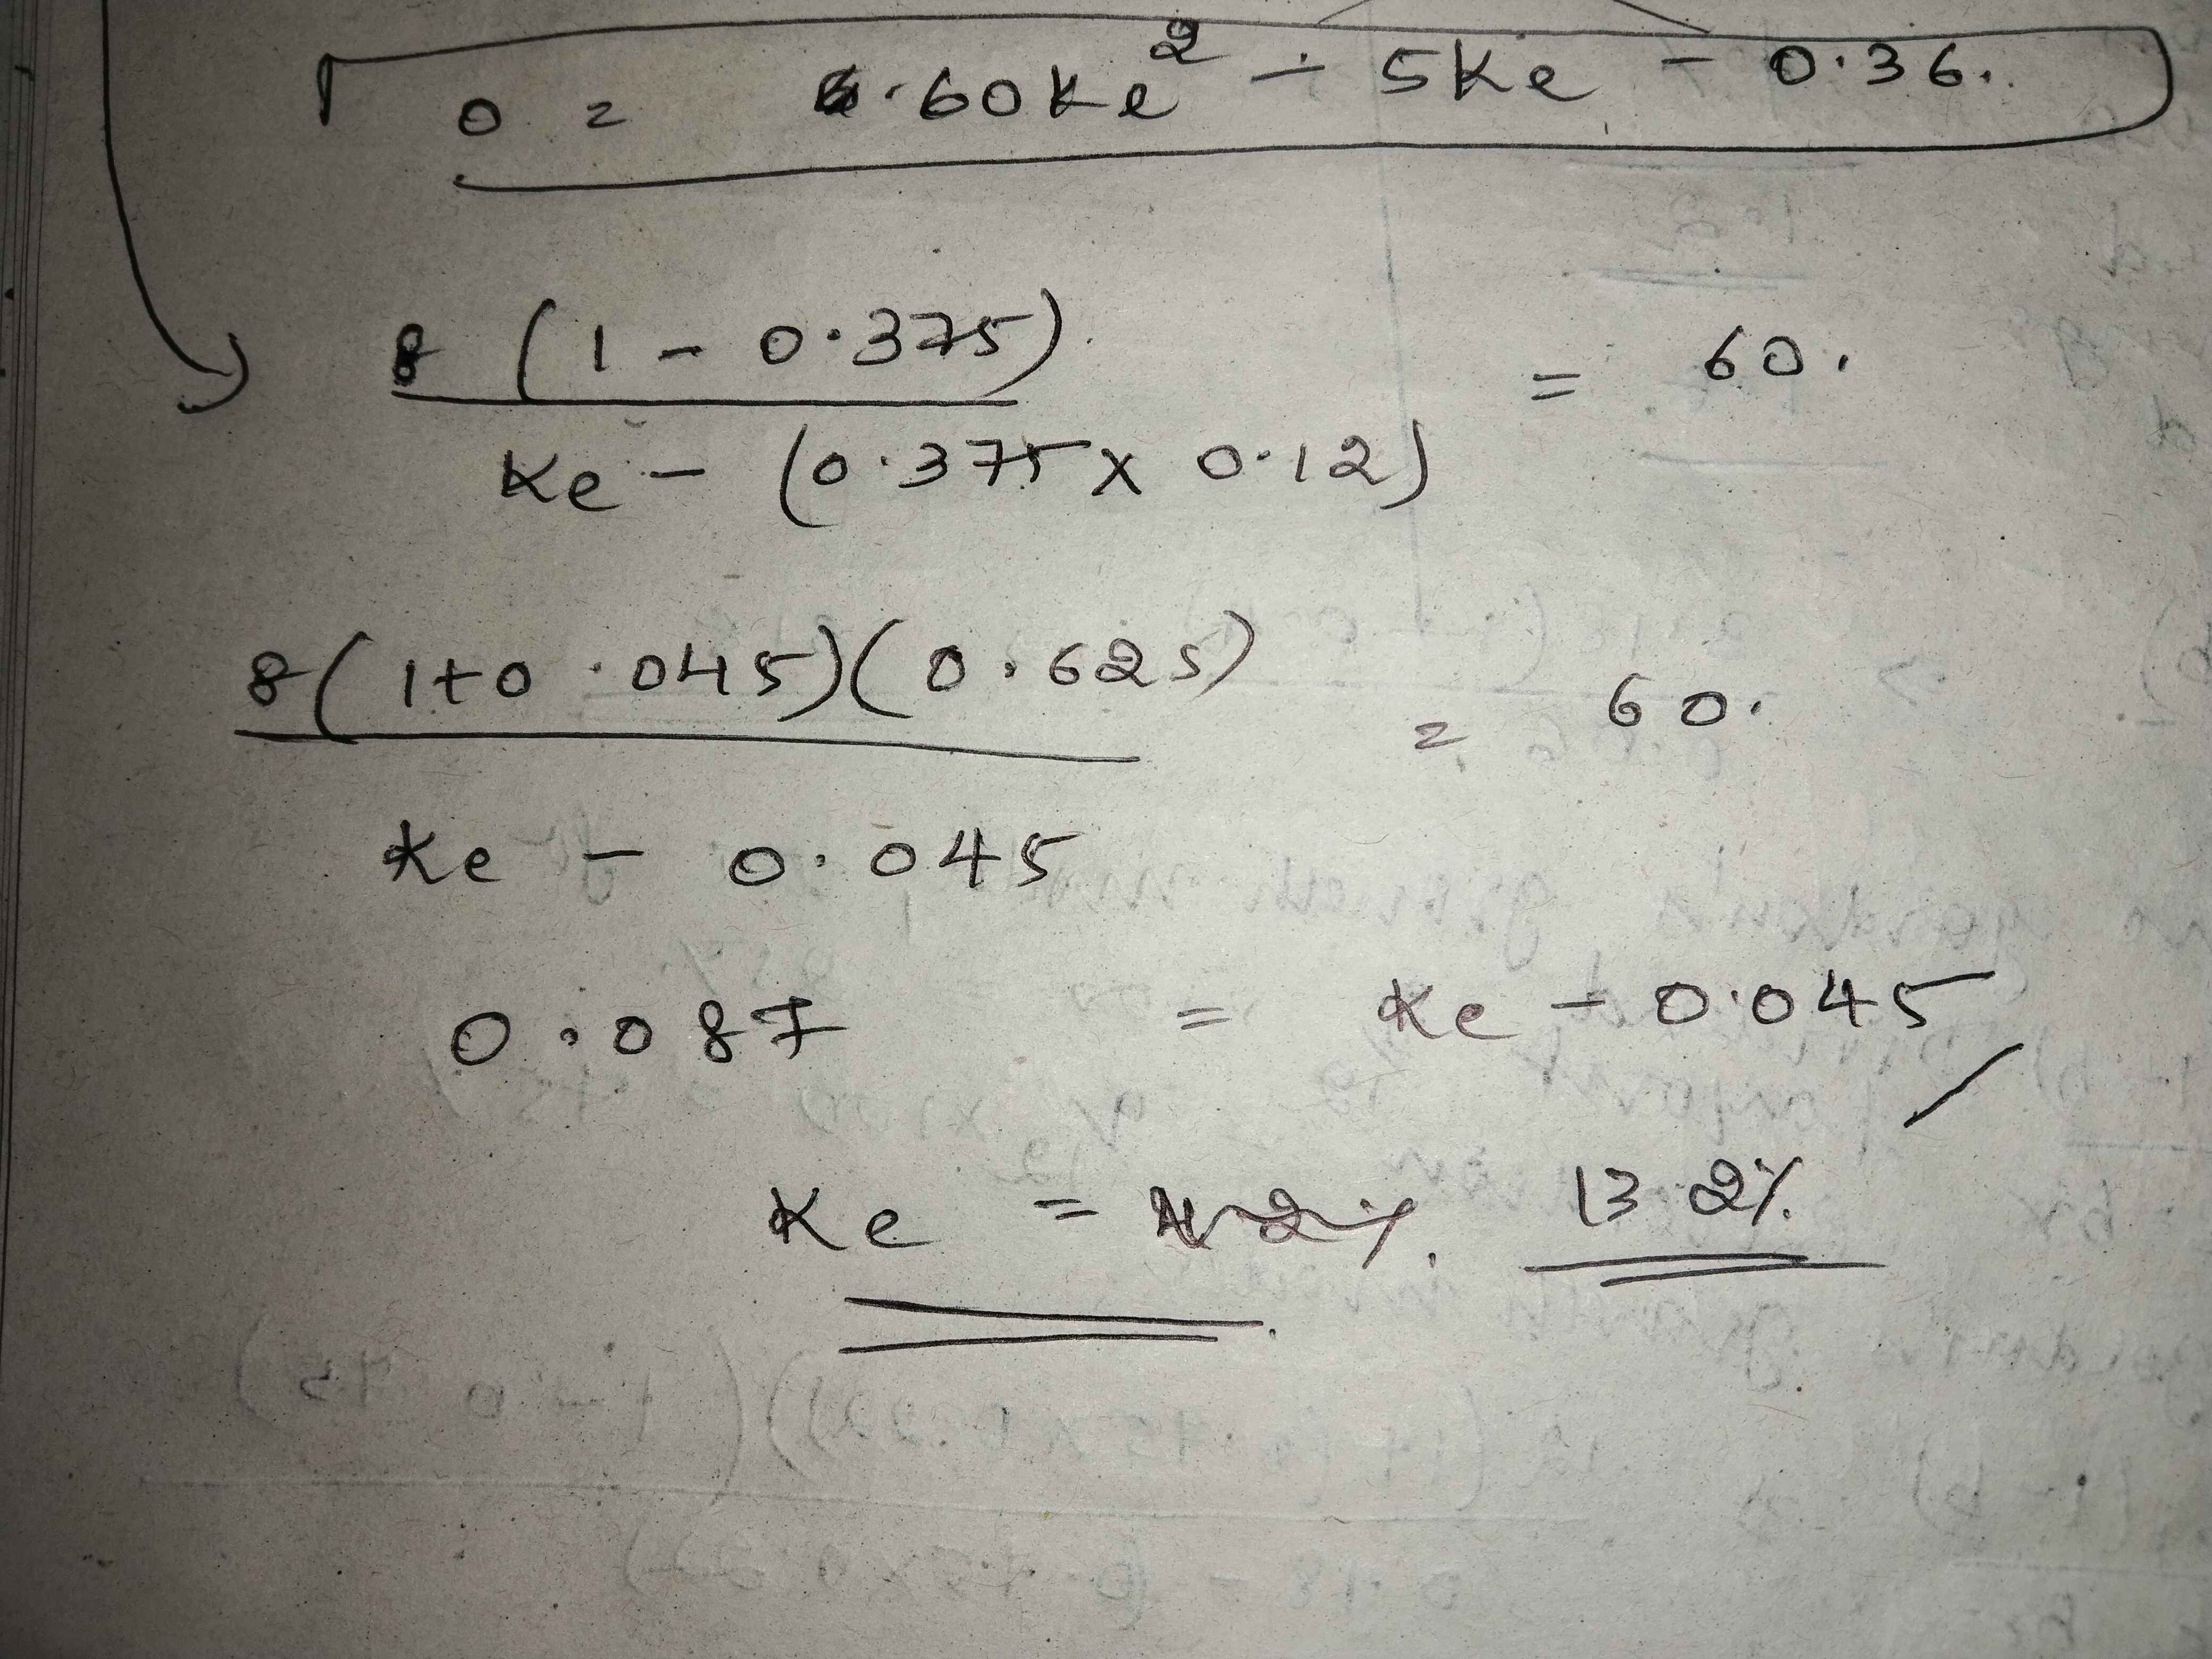 0 = .60Ke² - 5Ke - 0.36.
8 (1 - 0.375)
= 60.
Ke - (0.375 x 0.12)
8(1+0.045)(0.625)
= 60.
Ke - 0.045
0.087 = Ke - 0.045
Ke = 13.2%